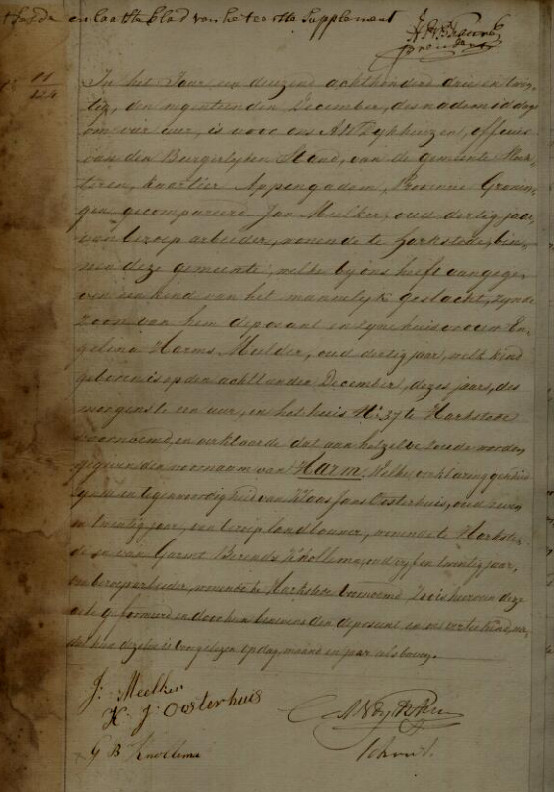 en laatste blad van het eerste Supplement
president
11
124
In het Jaar een duizend achthonderd drie en twin-
tig, den negentienden December, des nademiddags
om vier uur, is voor ons A W Dykhuizen, officier
van den Burgerlyken Stand, van de gemeente Slog-
teren, kwartier Appingadam, Provincie Gronin-
gen gecompareerd Jan Meelker, oud dertig jaar,
van beroep arbeider, wonende te Harkstede, bin-
nen deze gemeente, welke by ons heeft aangege-
ven een kind van het mannelyk geslacht, zynde
zoon van hem deposant en syne huisvrouw En-
gelina Harms Mulder, oud dertig jaar, welk kind
geboren is op den achttienden December, dezes jaars, des
morgens te een uur, in het huis No 37 te Harkstede
voornoemd, en verklaarde dat aan hetzelve zoude worden
gegeven den voornaam van Harm. Welke verklaring geschied
is in tegenwoordigheid van Klaas Jans Oosterhuis, oud zeven
en twintig jaar, van beroep landbouwer, wonende te Harkste-
de en van Garmt Berends Knollema, oud vyf en twintig jaar,
van beroep arbeider, wonende te Harkstede voornoemd. Zo is hiervan deze
acte geformeerd en door hun benevens den deposant en ons verteekend, na-
dat hun dezelve is voorgelezen op dag, maand en jaar als boven.
J. Meelker
K J Oosterhuis
G B Knollema
A W Dykhuizen
Schout.